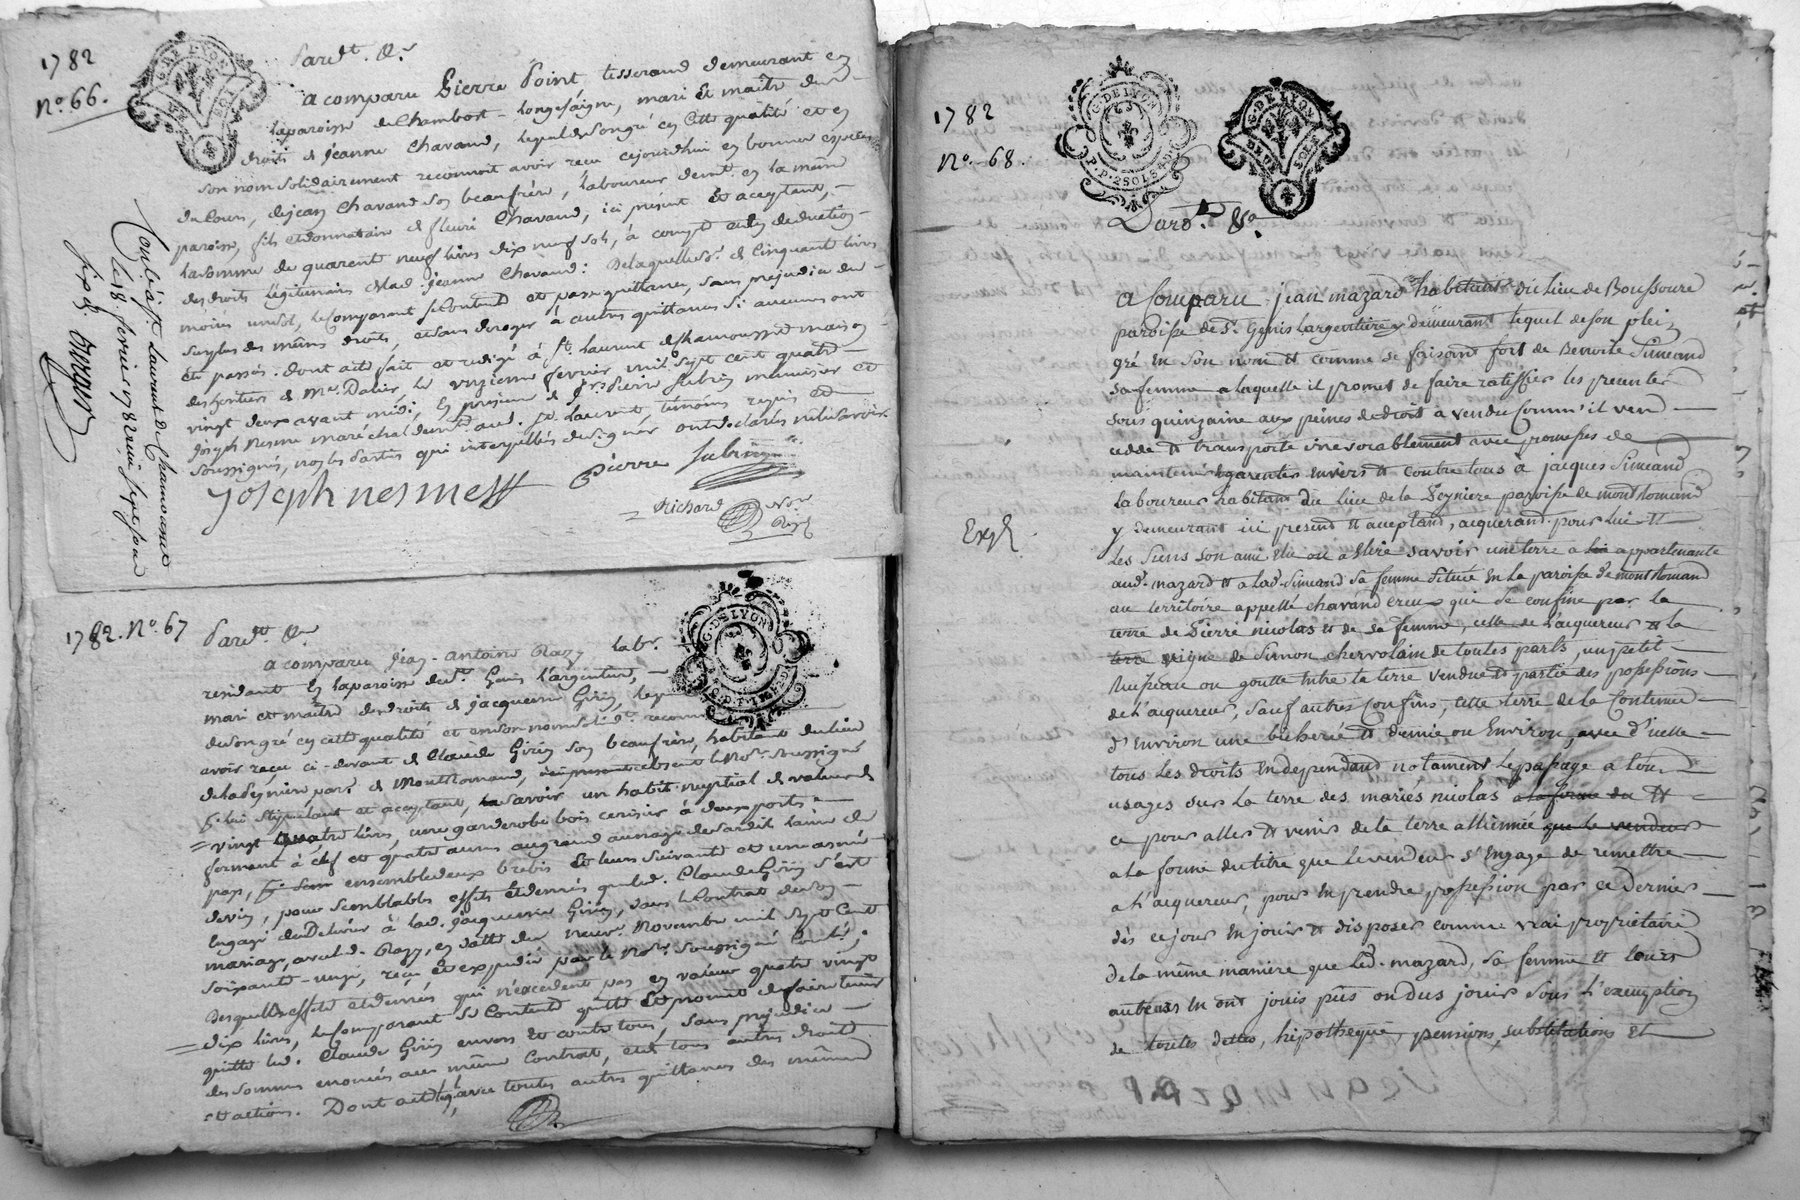 1782
nº. 66.
G. DE LYON
Pard.t &.
a comparu Pierre Point, tisserand demeurant en
la paroisse de Chambost-Longesaigne, mari et maître des
droits de Jeanne Chavand, lequel de son gré en cette qualité et en
son nom solidairement reconnoit avoir reçu cejourdhui en bonnes especes
du cours, de jean Chavand son beaufrère, laboureur demt. en la même
paroisse, fils et donnataire de fleuri Chavand, ici présent et aceptant,
la somme de quarent neuf livres dix neuf sols, à compte et en deduction
des droits légitimaires de lad. jeanne Chavand: De laquelle so.e de cinquant livres
moins un sol, le comparant se contente et passe quittance, sans prejudice du
surplus des mêmes droits, et sans deroger à autres quittances si aucunes ont
été passés. dont acte fait et redigé à St. Laurent de chamousset maison
des heritiers de Me. Dalier, le unzieme fevrier mil sept cent quatre
vingt deux avant midi, en presence de Srs. pierre Subrin menuisier et
Joseph Nesme maréchal demt. aud. St. Laurent, témoins requis et
soussignés, non les parties qui interpellés de signer ont déclarés ne le savoir.
joseph nesme Pierre Subrin
Richard No.re
Roy.l
Conlé à St. Laurent de Chamousset
le 18 fevrier 1782 reçu sept sous
six d.
1782. Nº. 67
G. DE LYON
Pard.t &.
a comparu Jean-Antoine Razy labr.
residant en la paroisse de St. Genis l'argentiere,
mari et maître des droits de jacqueme Girin, lequel
de son gré en cette qualité et en son nom solid.e reconnoit
avoir reçu ci-devant de Claude Girin son beaufrère, habitant du lieu
de la Peyniere par. de Montromand, absent le No.re soussigné
pr. lui stipulant et aceptant, savoir un habit nuptial de valeur de
vingt quatre livres, une garderobe bois cerisier à deux portes
fermant à clef et quatre aunes au grand aunage de sardit laine de
pays, ensemble deux brebis et leurs suivants et une asnée
de vin, pour semblables effets et denrés que led. Claude Girin s'est
engagé de délivrer à lad. Jacquemme Girin, dans le Contrat de son
mariage, avec led. Razy, en datte du neuv. Novembre mil sept cent
soixante-unze, reçu et expedié par le No.re soussigné Conlé,
desquels effets et denrés qui n'excedent pas en valeur quatre vingt
dix livres, le comparant se contente quitte et promet de faire tenir
quitte led. Claude Girin envers et contre tous, sans prejudice
des sommes enoncées au même Contrat, et de tous autres droits
et actions. Dont acte avec toutes autres quittances des mêmes
1782
nº. 68.
G. DE LYON
P.P. 2 SOLS 4 D.
G. DE LYON
DEUX SOLS
Pard.t &.
a Comparu jean mazard habitant du lieu de Boussoure
paroisse de St. Genis Largentiere y demeurant lequel de son plein
gré en son nom et comme se faisant fort de Benoite Simeand
sa femme a laquelle il promet de faire ratiffier les presentes
sous quinzaine aux peines de droit a vendu comm'il vend
cedde et transporte irrevocablement avec promesses de
maintenir garentir envers et contre tous à jacques Simeand
laboureur habitant du lieu de la Peyniere paroisse de montromand
y demeurant ici present et aceptant, aquerant pour lui et
Exp.é
les siens son ami elu ou a elire savoir une terre a appartenante
aud. mazard et a lad. Simeand sa femme située en la paroisse de montromand
au territoire appellé chavand creux qui se confine par la
terre de Pierre nicolas et de sa femme, celle de l'aquereur et la
terre vigne de Simon chervolain de toutes parts, un petit
ruisseau ou goutte entre la terre vendue et partie des possessions
de l'aquereur, sauf autres confins, cette terre de la contenue
d'environ une bicherée et demie ou environ, avec d'icelle
tous les droits en dependand notament le passage a tous
usages sur la terre des mariés nicolas a la forme du et
ce pour aller et venir de la terre allienée que le vendeur
a la forme du titre que le vendeur s'engage de remettre
a l'aquereur, pour en prendre possession par ce dernier
dès ce jour en jouir et disposer comme vrai proprietaire
de la même maniere que led. mazard, sa femme et leurs
auteurs en ont jouis pûs ou dus jouir sous l'exemption
de toutes dettes, hipotheque, pensions, substitutions et